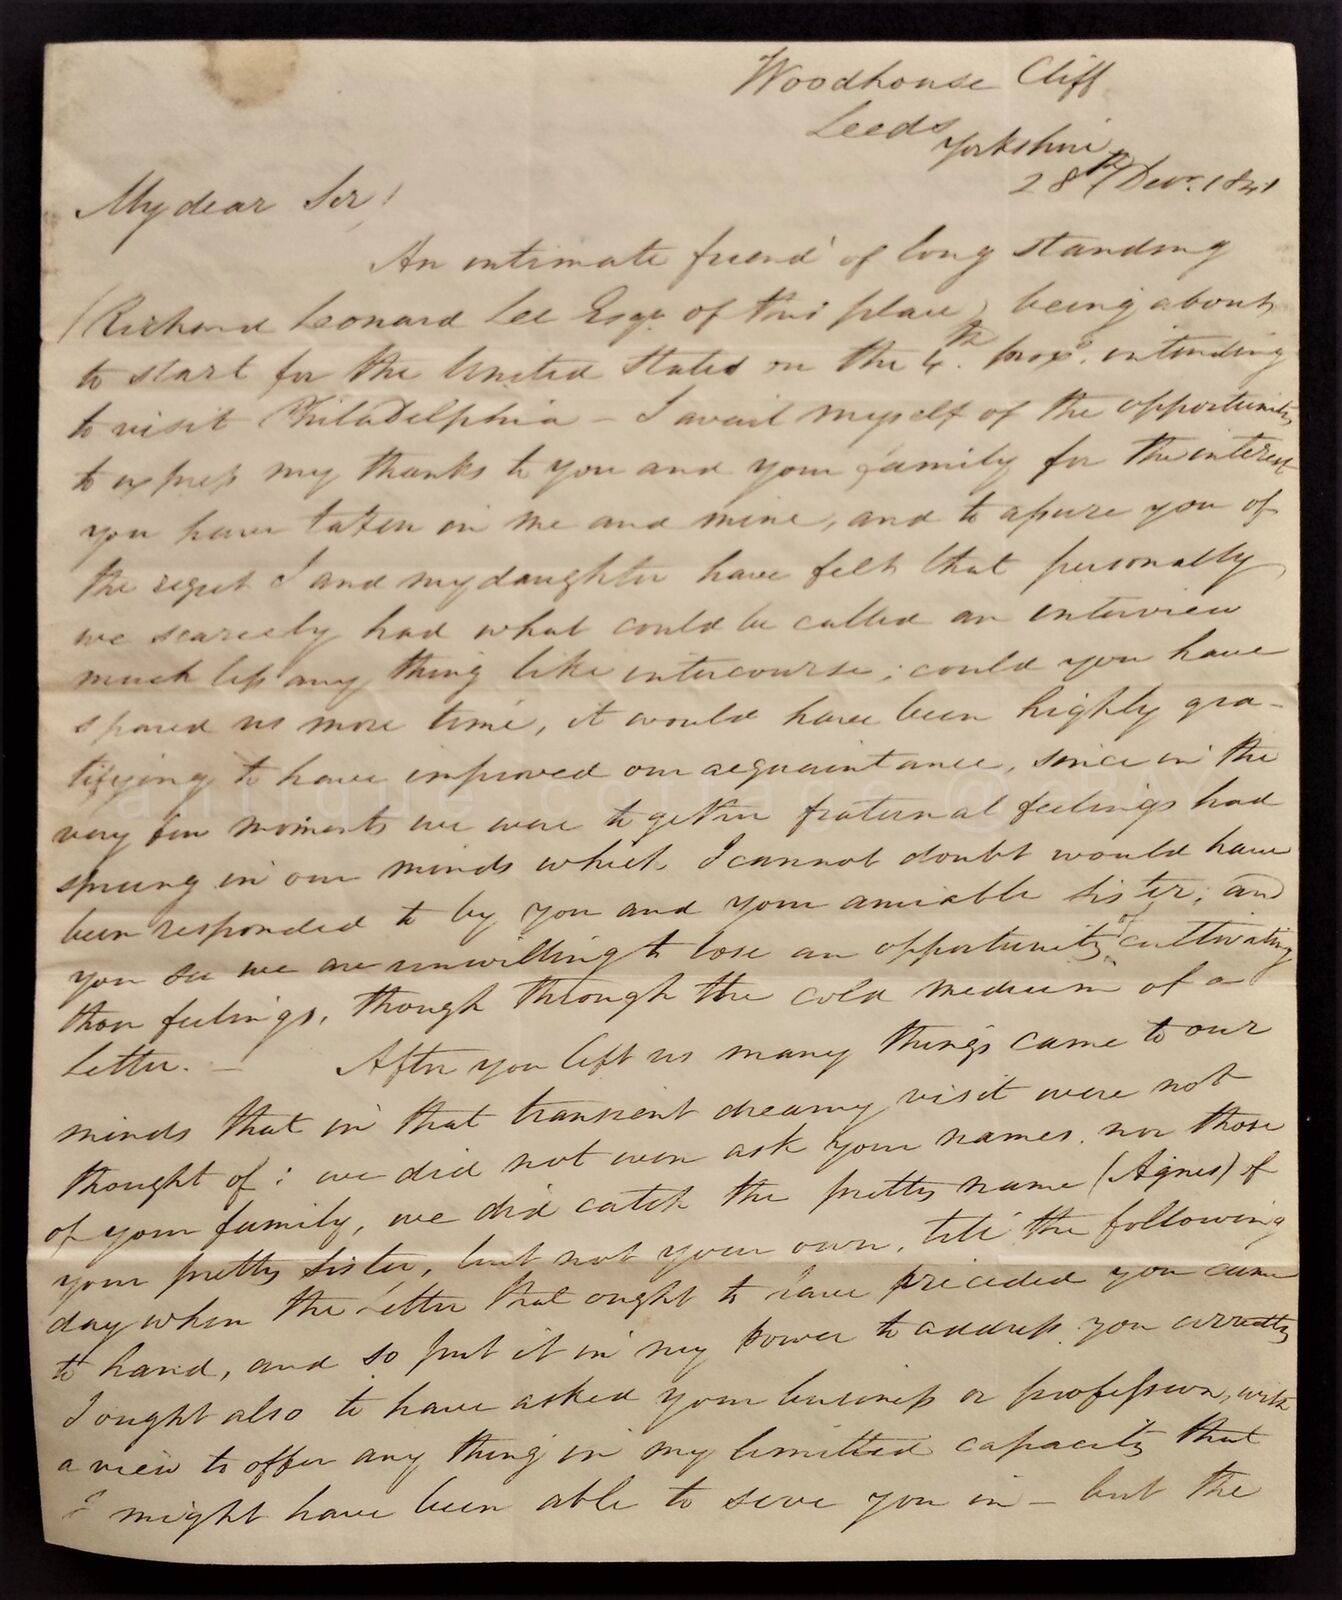 Woodhouse Cliff
Leeds
Yorkshire
28th Decr. 1841
My dear Sir!
An intimate friend of long standing
(Richard Leonard Lee Esqr. of this place) being about
to start for the United States on the 4th. proxo. intending
to visit Philadelphia – I avail myself of the opportunity
to express my thanks to you and your family for the interest
you have taken in me and mine, and to assure you of
the regret I and my daughter have felt that personally
we scarcely had what could be called an interview
much less any thing like intercourse; could you have
spared us more time, it would have been highly gra-
tifying to have improved our acquaintance, since in the
very few moments we were together fraternal feelings had
sprung in our minds which I cannot doubt would have
been responded to by you and your amiable sister; and
you see we are unwilling to lose an opportunity of cultivating
those feelings, though through the cold medium of a
letter. – After you left us many things came to our
minds that in that transient dreamy visit were not
thought of: we did not even ask your names, nor those
of your family, we did catch the pretty name (Agnes) of
your pretty sister, but not your own, till the following
day when the letter that ought to have preceded you came
to hand, and so put it in my power to address you correctly
I ought also to have asked your business or profession, with
a view to offer any thing in my limitted capacity that
I might have been able to serve you in – but the
antique cottage